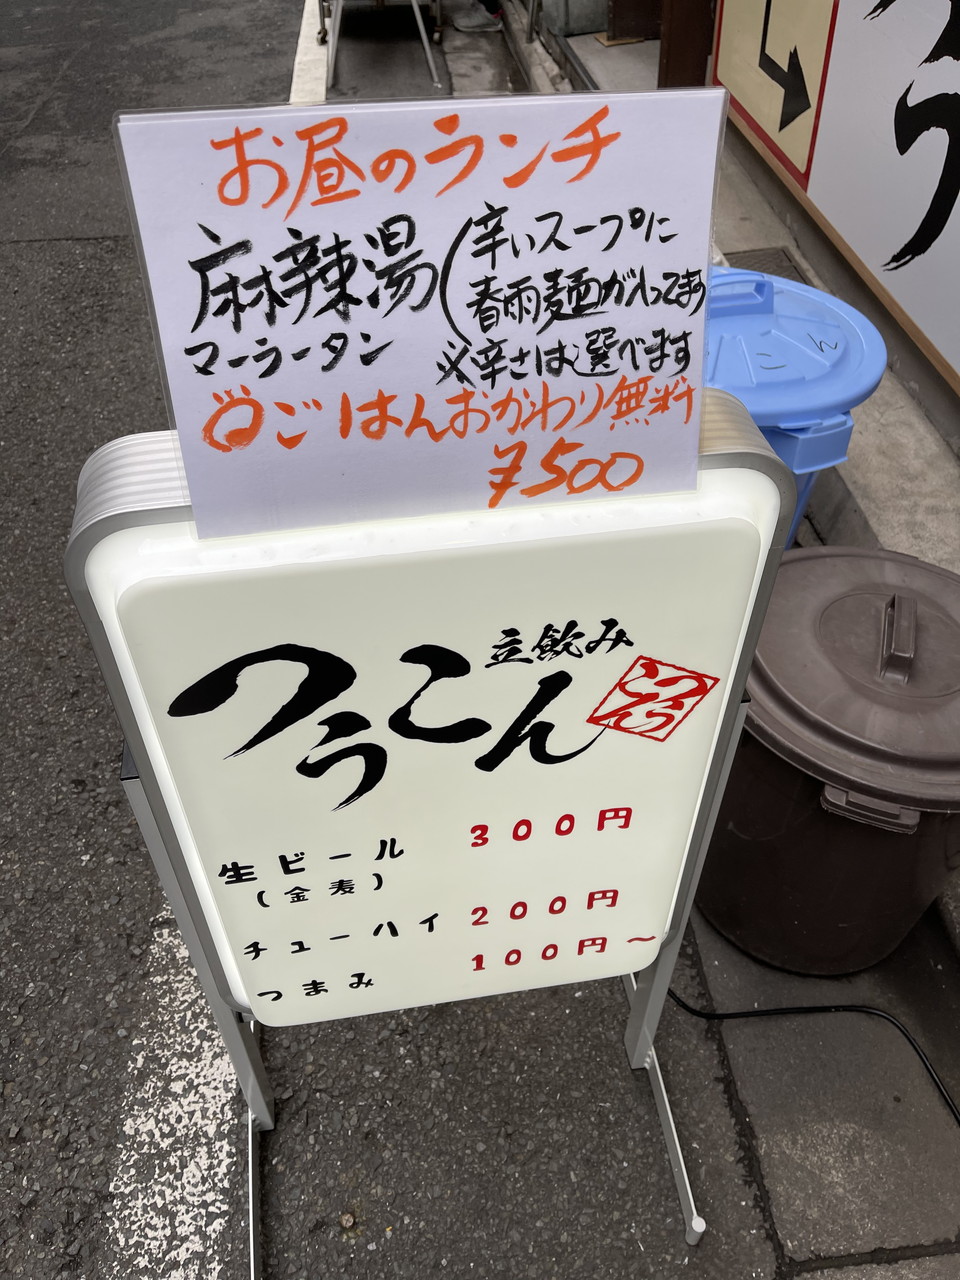 お昼のランチ
麻辣湯
マーラータン
(辛いスープに
春雨麺が入ってます
※辛さは選べます
ごはんおかわり無料
¥500
立飲み
つうこん
生ビール 300円
(金麦)
チューハイ 200円
つまみ 100円~
う